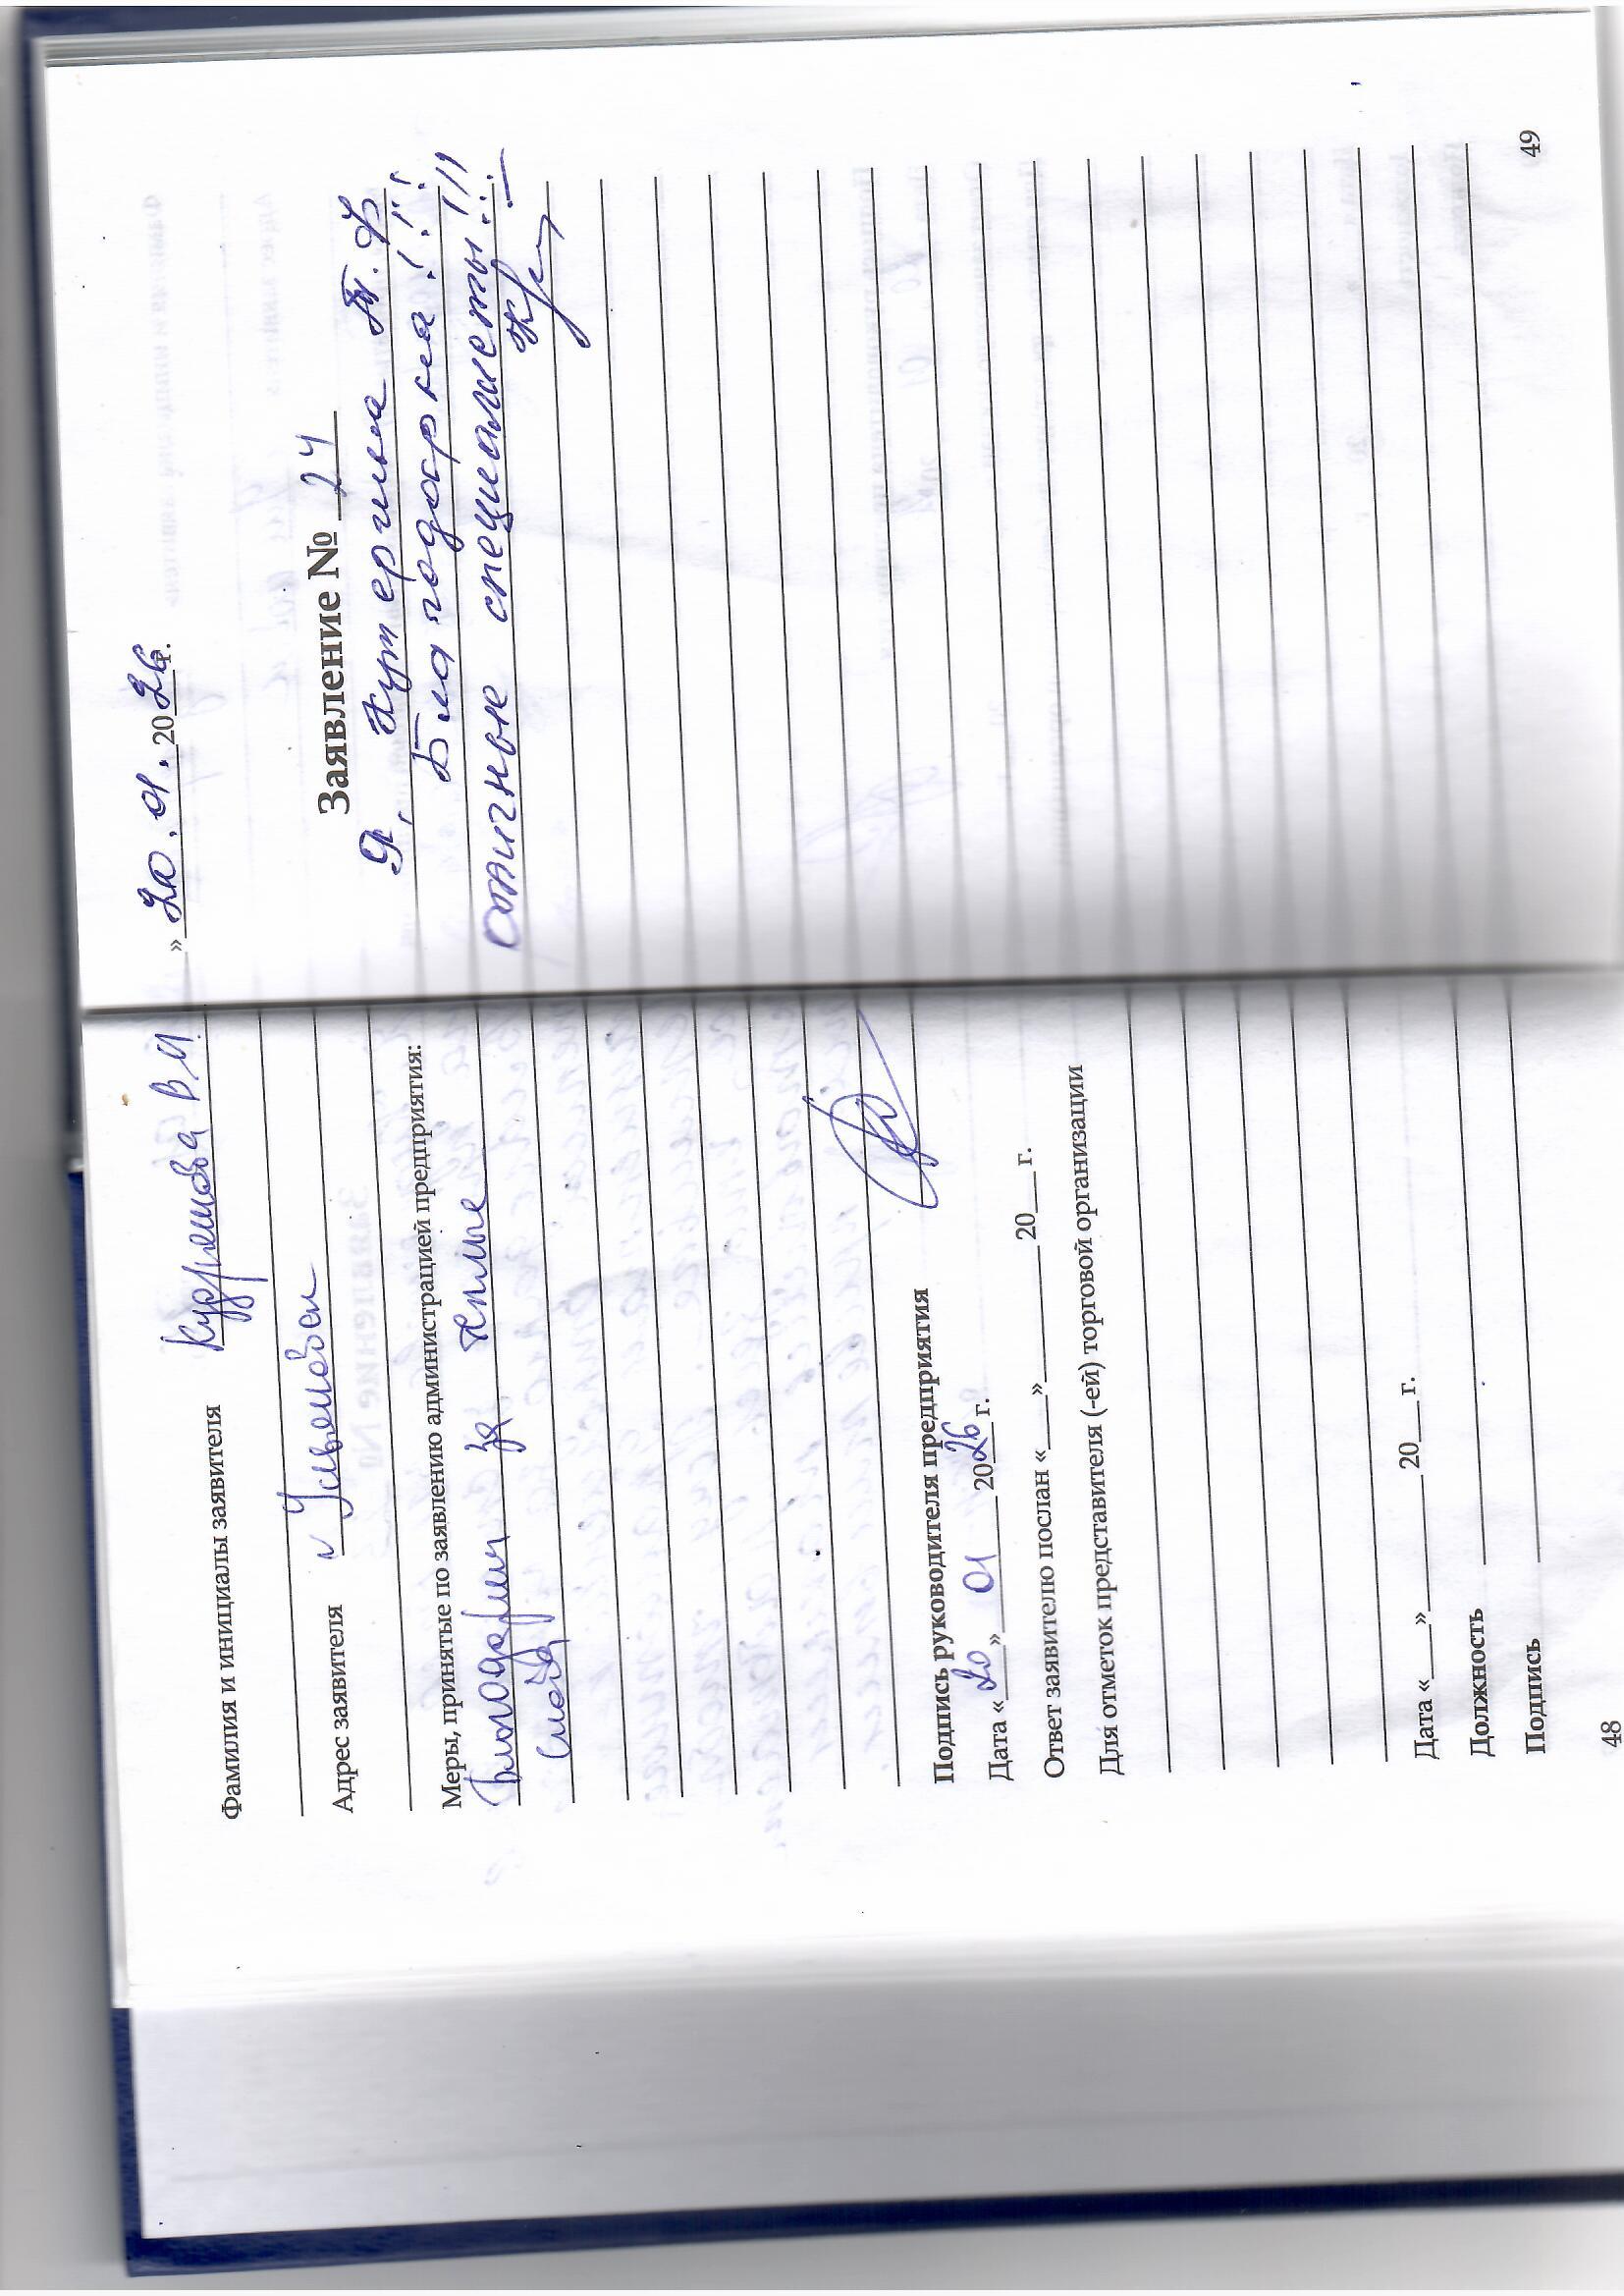 Фамилия и инициалы заявителя Кудряшова В.И.
Адрес заявителя
Меры, принятые по заявлению администрацией предприятия:
Благодарим за тёплые
слова
Подпись руководителя предприятия
Дата «20» 01 2026 г.
Ответ заявителю послан «___»________20___г.
Для отметок представителя (-ей) торговой организации
Дата «___»________20___г.
Должность
Подпись
48
» 20.01.2026г.
Заявление № 24
Я, Кутергина Т.Ф
Благодарна!!!!
Отличные специалисты!!!
49